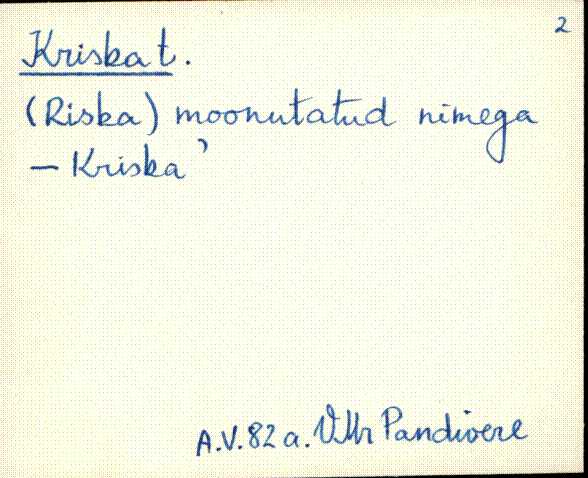 2
Kriska t.
(Riska) moonutatud nimega
— Kriska'
A.V. 82 a. VMr Pandivere